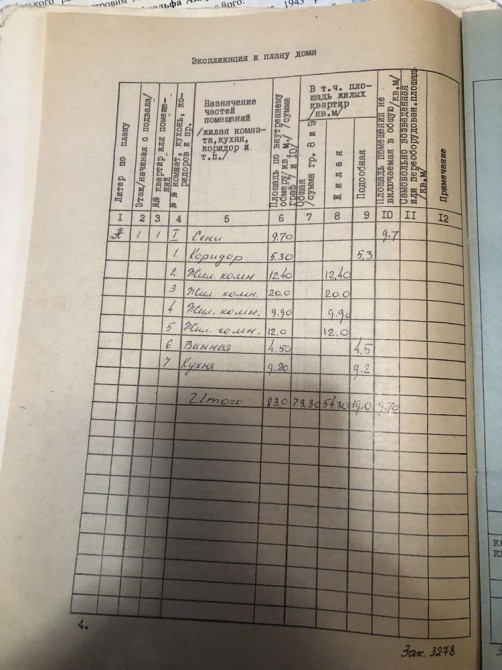 Экспликация к плану дома
Литер по плану
Этаж/начиная с подвала/
№№ квартир или помещений
№ № комнат, кухонь, коридоров и пр.
Назначение
частей
помещений
/жилая комна-
та, кухня,
коридор и
т.п./
Площадь по внутреннему
обмеру/кв.м./ /сумма
граф 7 и 10/
Общая
/сумма гр. 8 и 9
В т.ч. пло-
щадь жилых
квартир
/кв.м/
Жилая
Подсобная
Площадь помещений не
включаемая в общую/кв.м/
Самовольно возведенная
или переоборудован.площадь
/кв.м/
Примечание
I 2 3 4 5 6 7 8 9 IO II I2
А 1 1 I Сени 9.70 9.7
1 Коридор 5.30 5.3
2 Жил. комн 12.40 12.40
3 Жил. комн. 20.0 20.0
4 Жил. комн. 9.90 9.90
5 Жил. комн. 12.0 12.0
6 Ванная 4.50 4.5
7 Кухня 9.20 9.2
Итого 83.0 73.30 54.30 19.0 9.70
4.
Зак. 3278